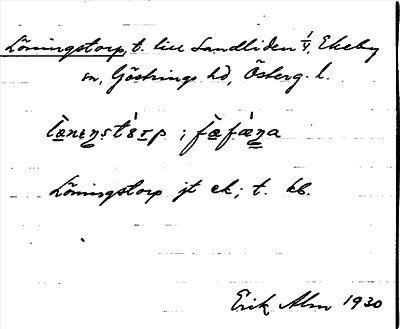 Löningstorp, t. lill Sandliden 1/4, Ekeby
sn, Göstrings hd, Österg. l.
lö̀nɩŋst𝑜́rp ; fö̀fàŋa
Löningstorp jt ek; t. kb.
Erik Alm 1930